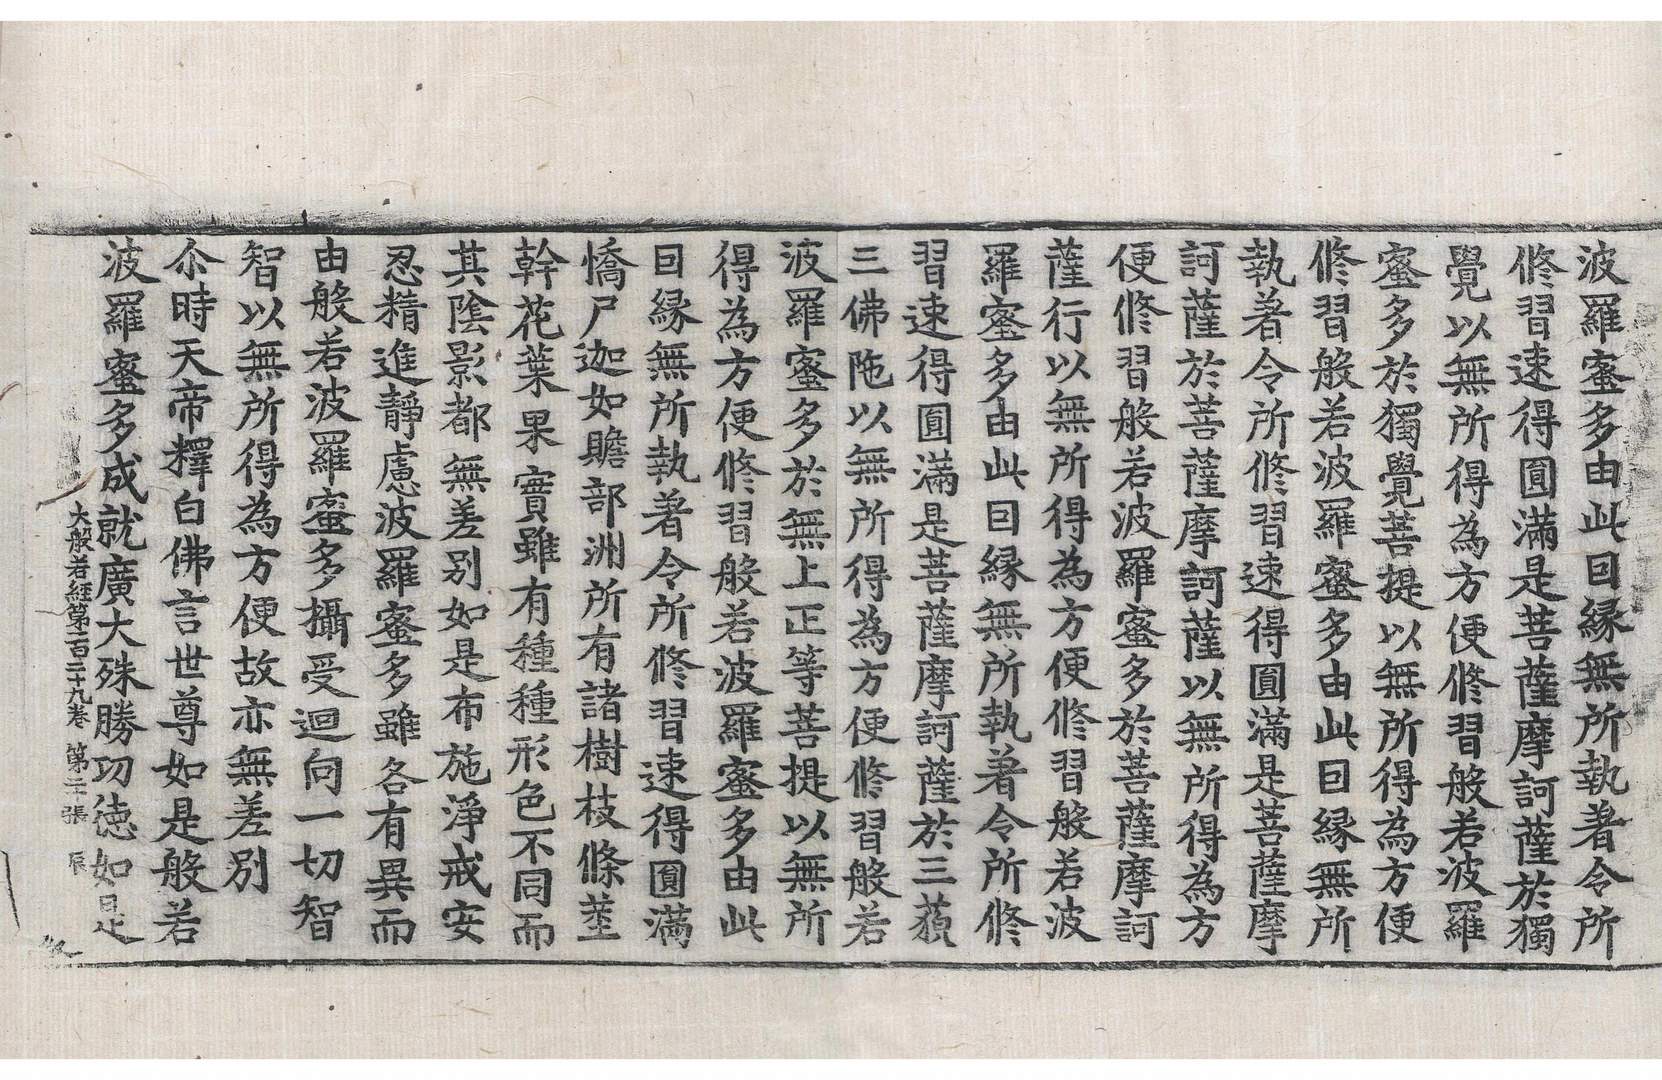 波羅蜜多由此因縁無所執著令所
修習速得圓滿是菩薩摩訶薩於獨
覺以無所得為方便修習般若波羅
蜜多於獨覺菩提以無所得為方便
修習般若波羅蜜多由此因縁無所
執著令所修習速得圓滿是菩薩摩
訶薩於菩薩摩訶薩以無所得為方
便修習般若波羅蜜多於菩薩摩訶
薩行以無所得為方便修習般若波
羅蜜多由此因縁無所執著令所修
習速得圓滿是菩薩摩訶薩於三藐
三佛陁以無所得為方便修習般若
波羅蜜多於無上正等菩提以無所
得為方便修習般若波羅蜜多由此
因縁無所執著令所修習速得圓滿
憍尸迦如贍部洲所有諸樹枝條莖
幹花葉果實雖有種種形色不同而
其陰影都無差別如是布施淨戒安
忍精進靜慮波羅蜜多雖各有異而
由般若波羅蜜多攝受迴向一切智
智以無所得為方便故亦無差別
尒時天帝釋白佛言世尊如是般若
波羅蜜多成就廣大殊勝功徳如是
大般若經第一百二十九卷 第二張 辰